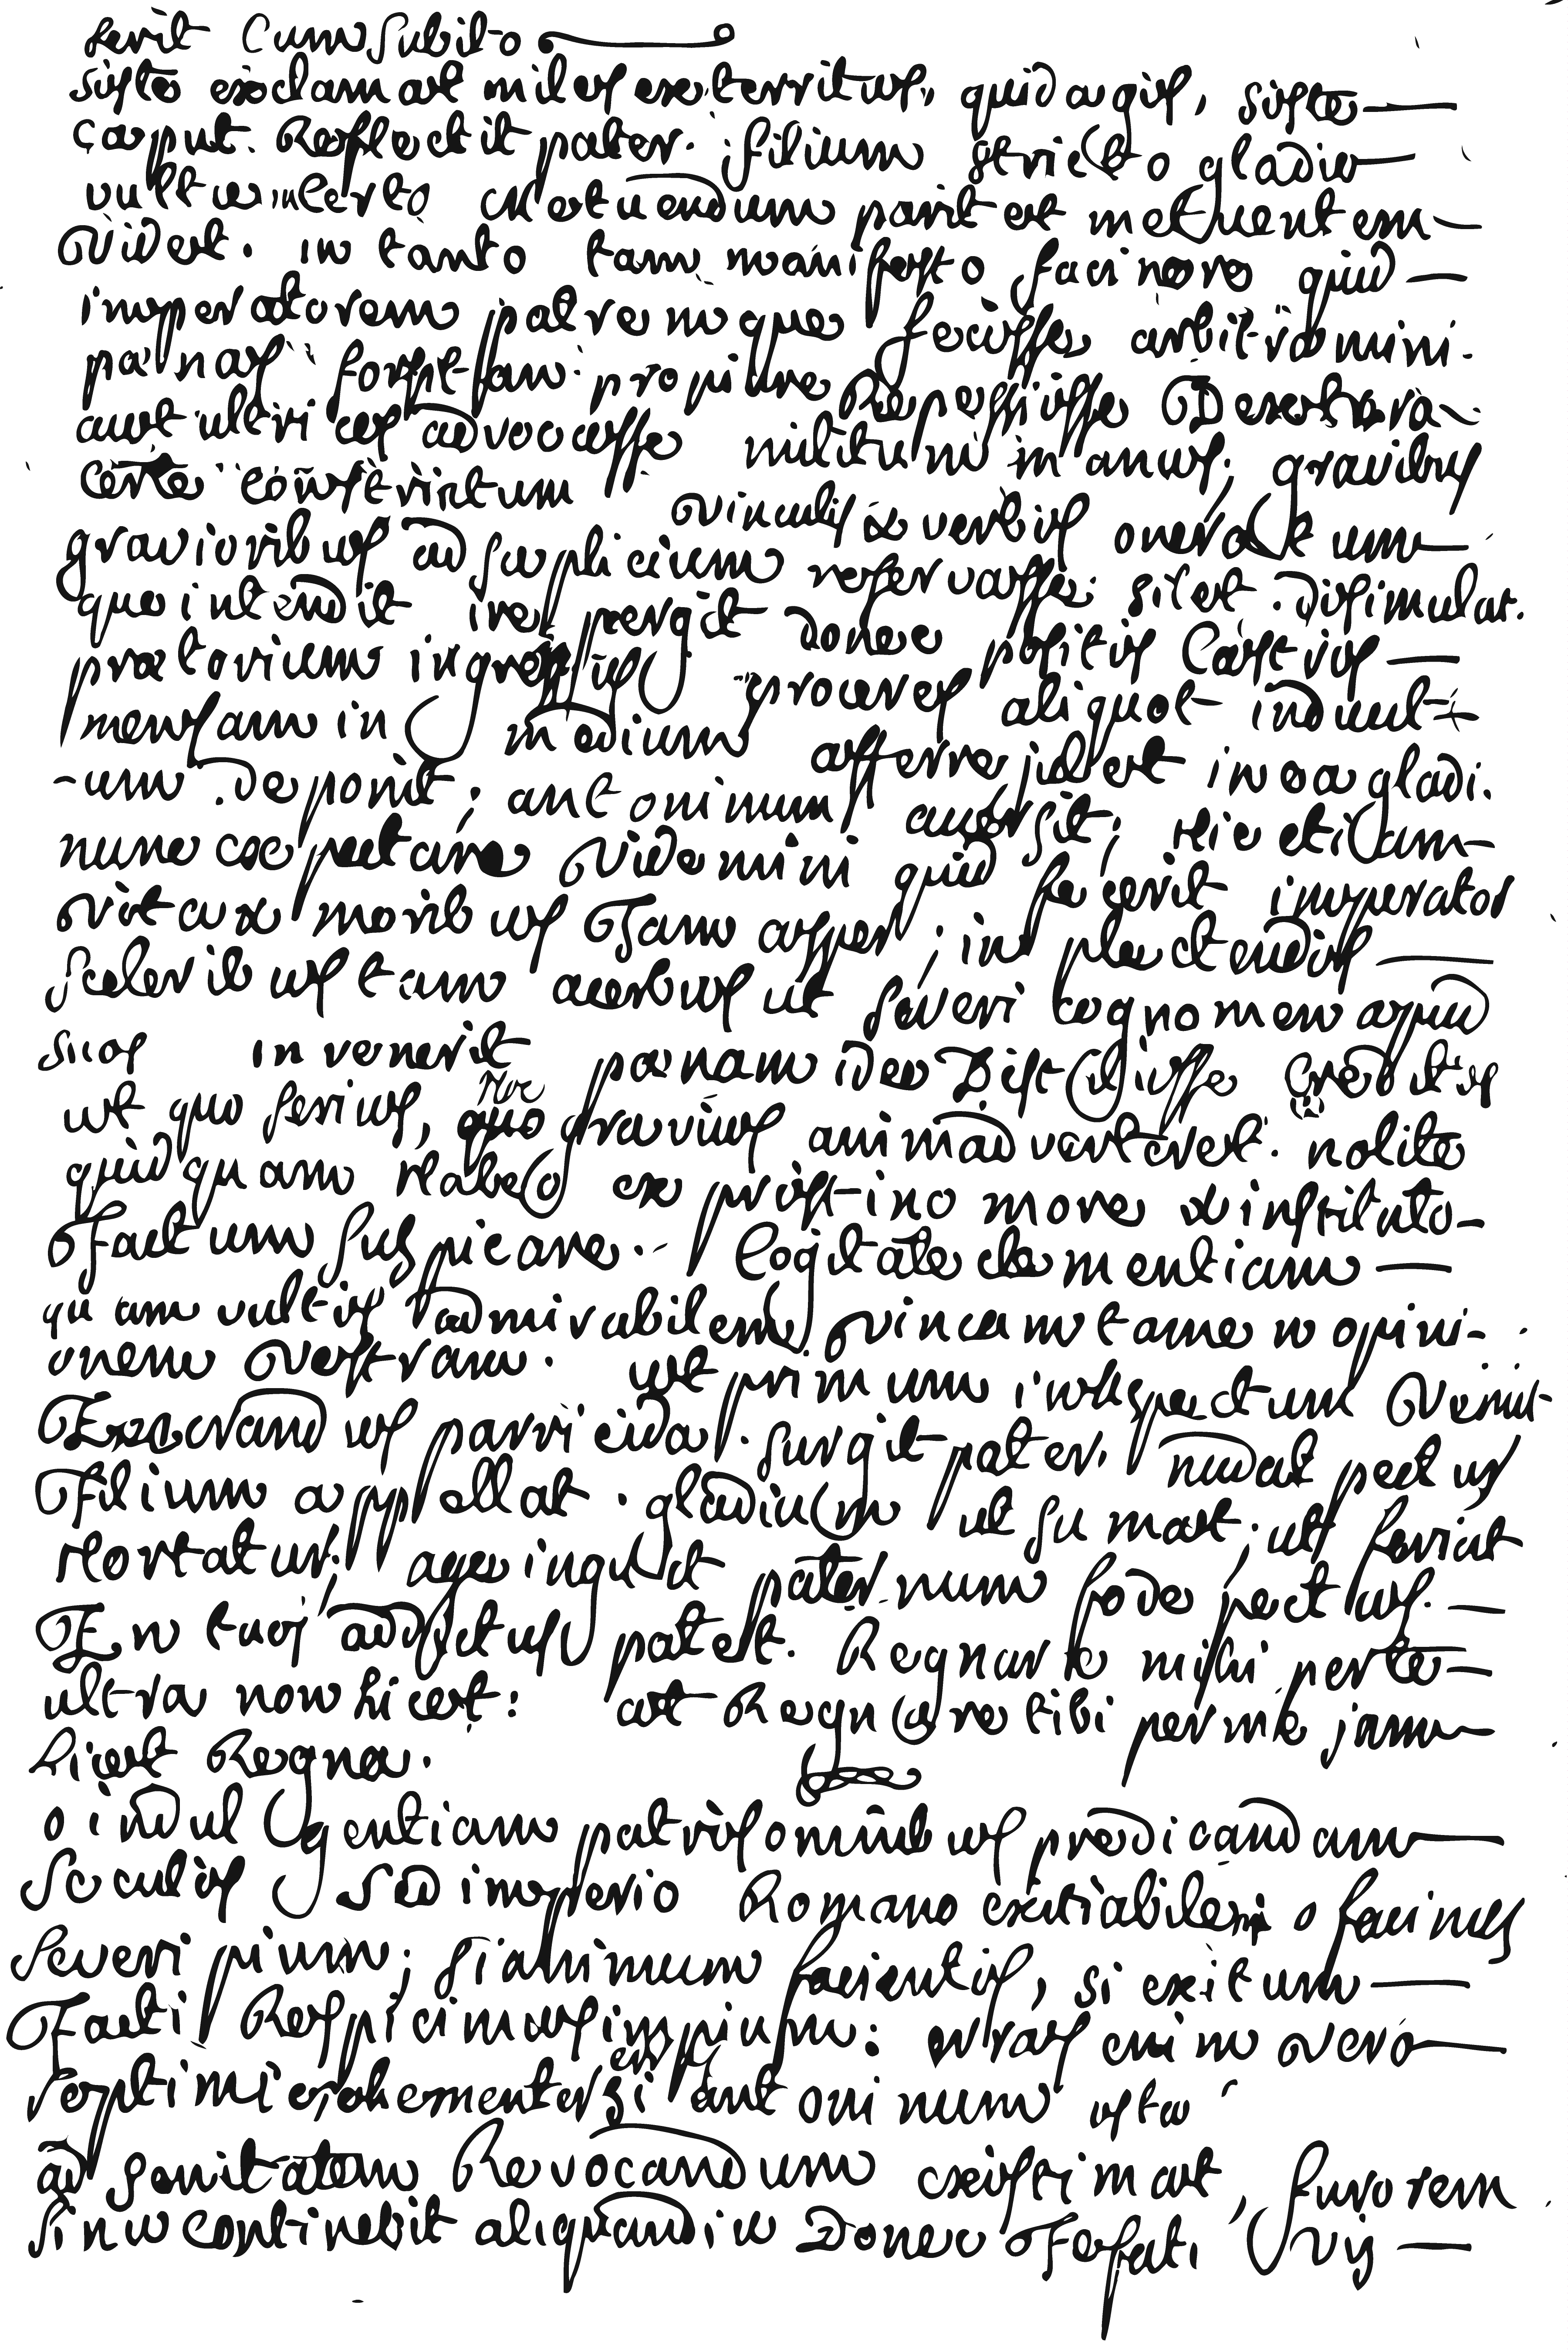 serit Cum Subito
siste exclamat miles exterritus, quid agis, siste
caput. Reflectit pater. filium stricto gladio
vultu incerto Metuendum parit et metuentem
Videt. in tanto tam manifesto facinore quid
imperatorem patremque fecisse arbitramini.
pœnas forsitan propiore Repessisse Dextera
aut ultrices advocasse militum manus; gravibus
certe constrictum vinculis & verbis oneratum
gravioribus ad suplicium reservasse: silet. disimulat.
quo intendit ire pergit donec positis Castris
prætorium ingressus proceres aliquot induit
mensam in medium afferre jubet in ea gladi.
-um deponit; antoninum accersit; Hic etiam
nunc expectare Videmini quid fecerit imperator
Vita & moribus Tam asper; in plectendis
Sceleribus tam acerbus ut Severi cognomen apud
suos invenerit pœnam ideo Distulisse Creditis
ut quo serius, Hoc gravius animadverteret. nolite
quidquam Habeo ex pristino more & instituto
Factum Suspicare. Cogitate clementiam
quam vultis admirabilem vincam tamen opini-
onem Vestram. ut primum in conspectum Venit
Execrandus parricida. surgit pater. nudat pectus
Filium appellat. gladium ut sumat; ut feriat
Hortatur; age inquit paternum fode pectus.
En tuos ad ictus patet. Regnare mihi per te
ultra non licet: at Regnare tibi per me jam
licet Regna.
o indulgentiam patris omnibus predicandam
Seculis Sed imperio Romano exitiabilem o facinus
Severi pium; si animum facientis, si exitum
Facti Respicimus impium: erras enim vero
septimi vehementer si antoninum ista
ad sanitatem Revocandum existimat, furorem
sinu continebit aliquandiu Donec Fefati vis